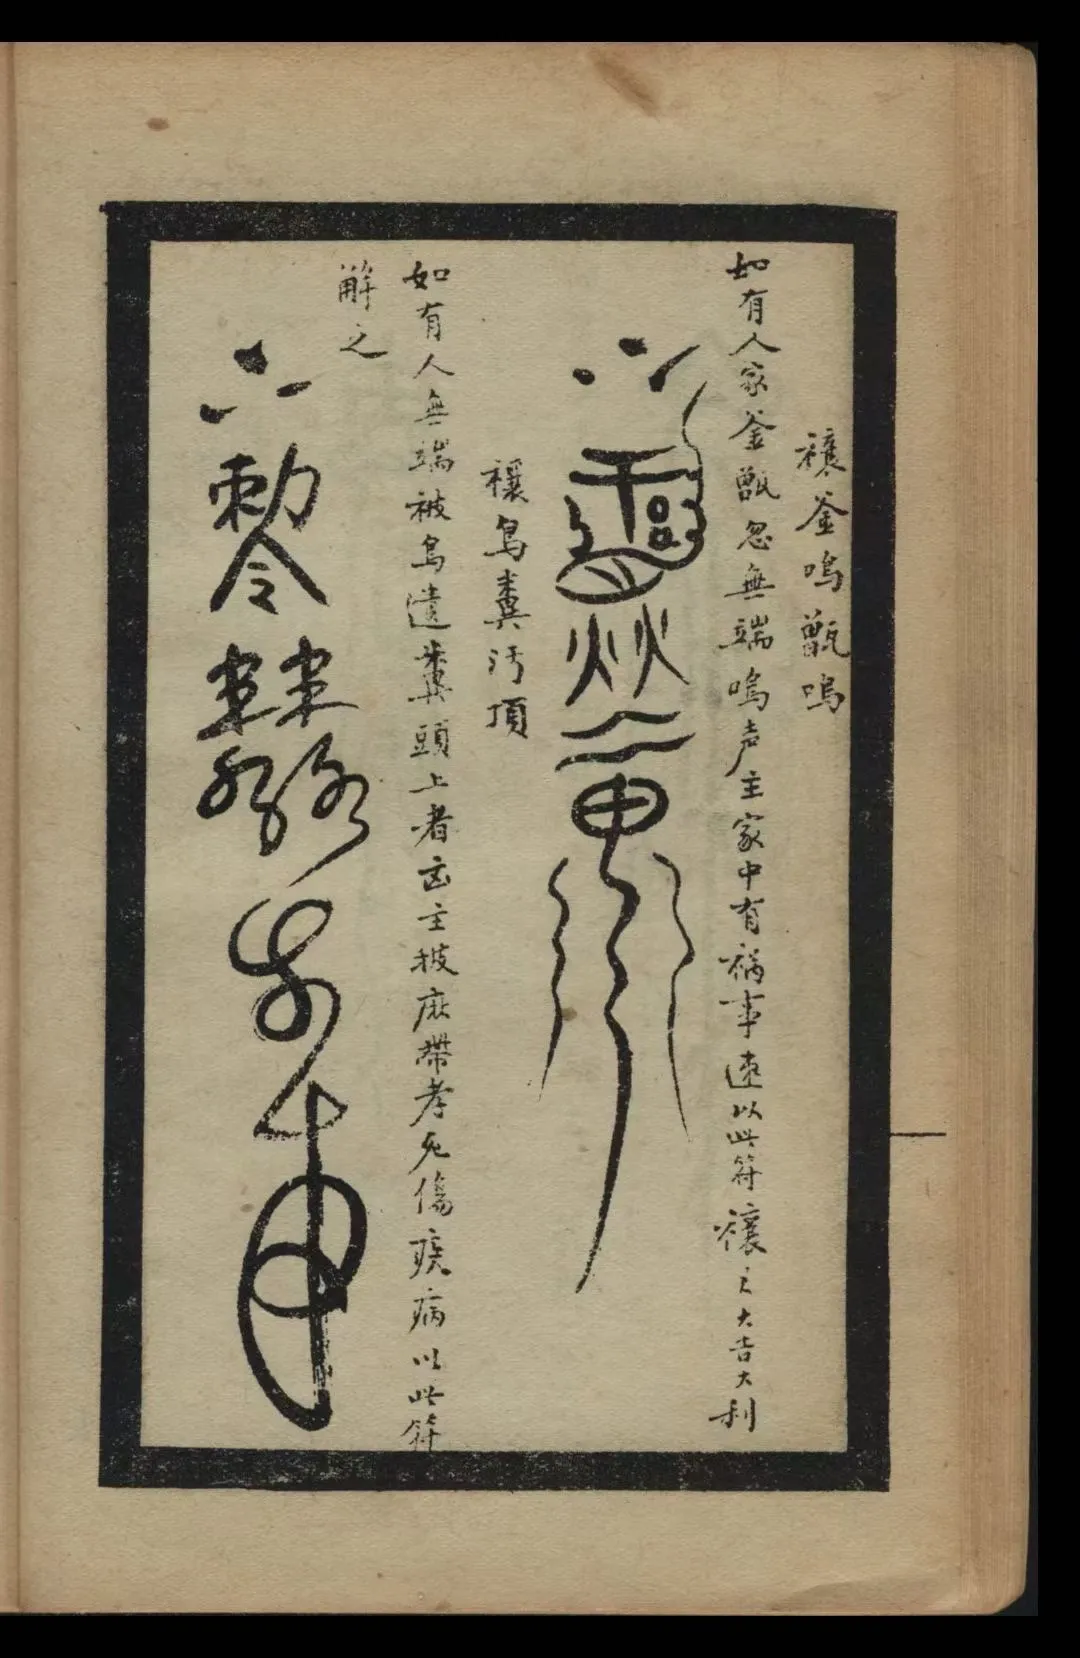 禳釜鳴甑鳴
如有人家釜甑忽無端鳴声主家中有禍事速以此符禳之大吉大利
禳鳥糞汚頂
如有人無端被鳥遺糞頭上者凶主披麻帶孝死傷疾病以此符
解之
勅令